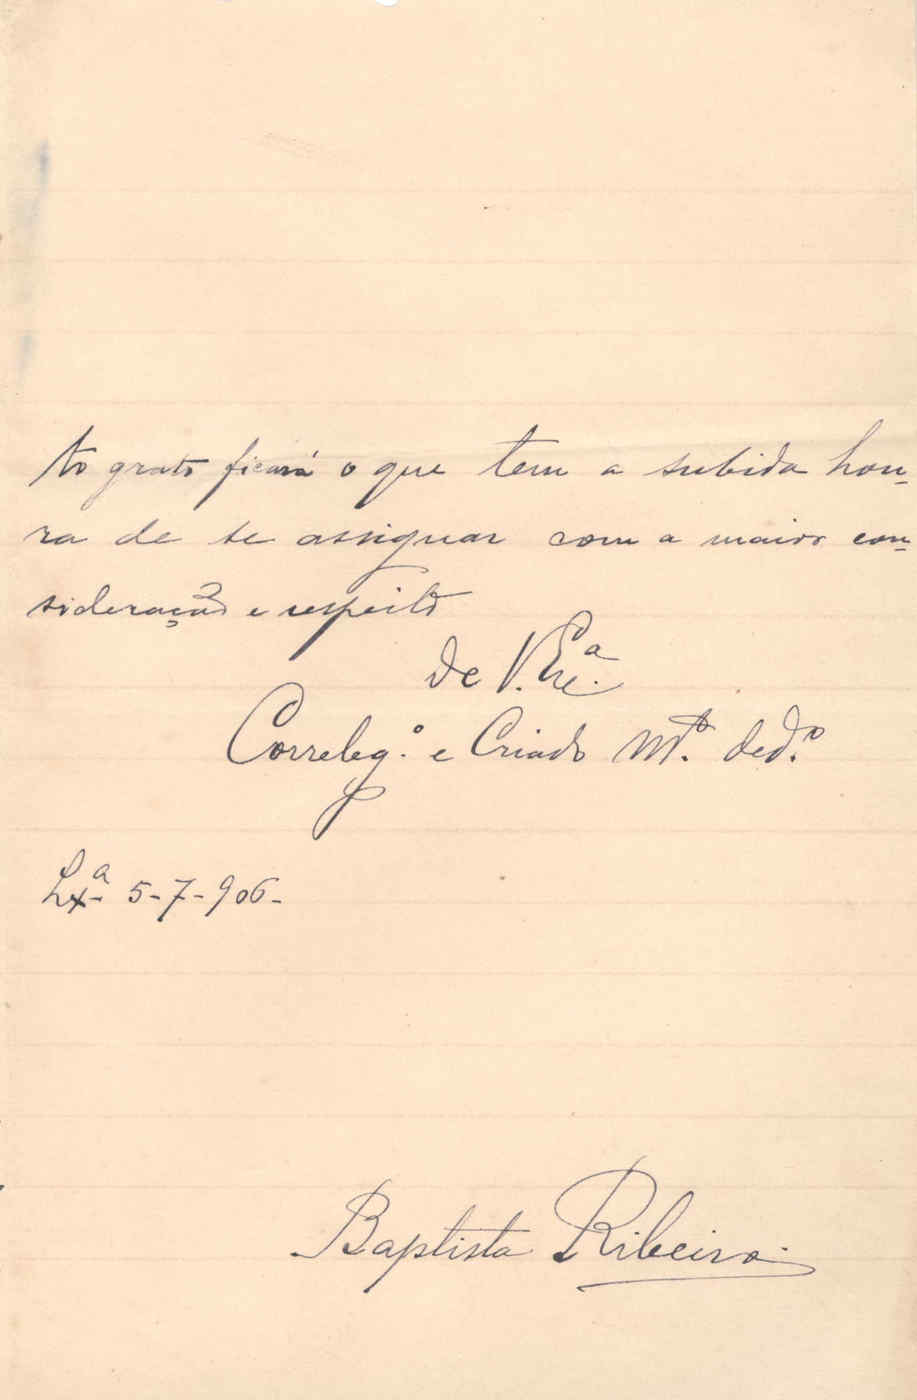 to grato ficará o que tem a subida hon-
ra de se assignar com a maior con-
sideração e respeito
de V. Exe.ª
Correleg.º e Criado M.to ded.º
Lx.ª 5-7-906-
Baptista Ribeiro